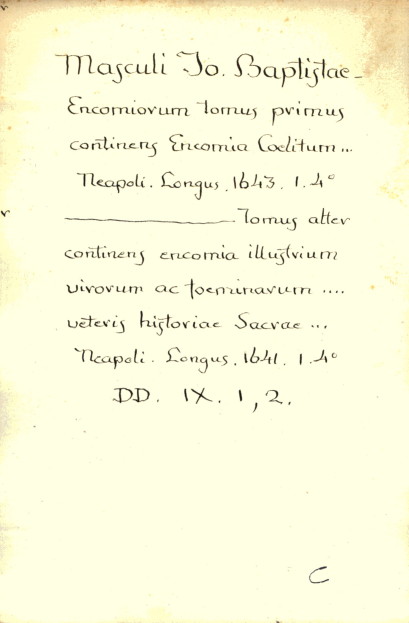 Masculi Io. Baptistae_
Encomiorum tomus primus
continens Encomia Coelitum...
Neapoli. Longus. 1643. 1.4°
———— Tomus alter
continens encomia illustrium
virorum ac foeminarum ....
veteris historiae Sacrae ...
Neapoli. Longus. 1641. 1.4°
DD. IX. 1, 2.
C